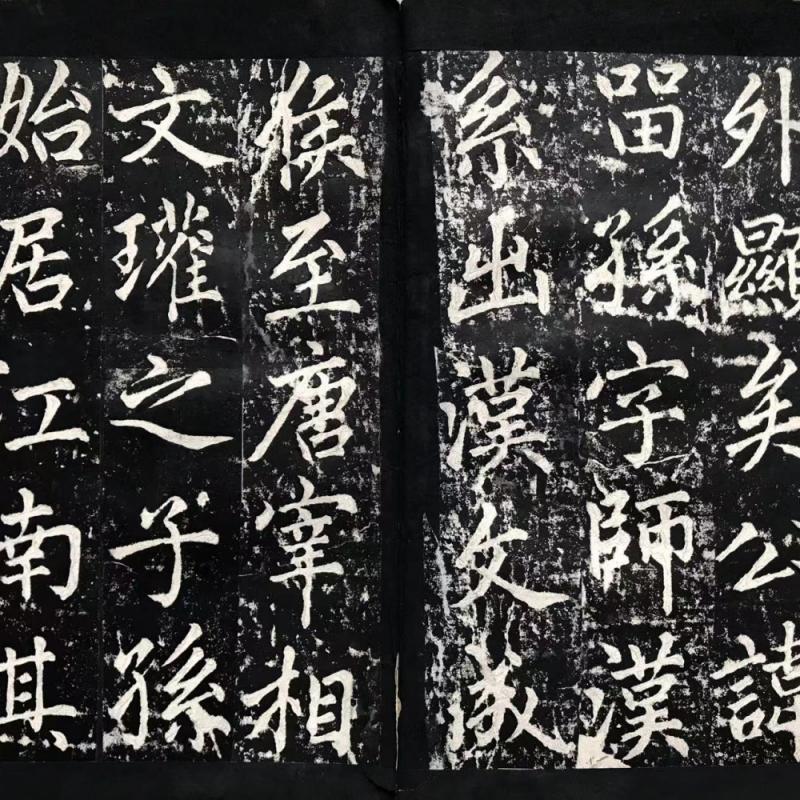 外顯矣公諱
㽞孫字師漢
系出漢文成
侯至唐宰相
文瓘之子孫
始居江南其